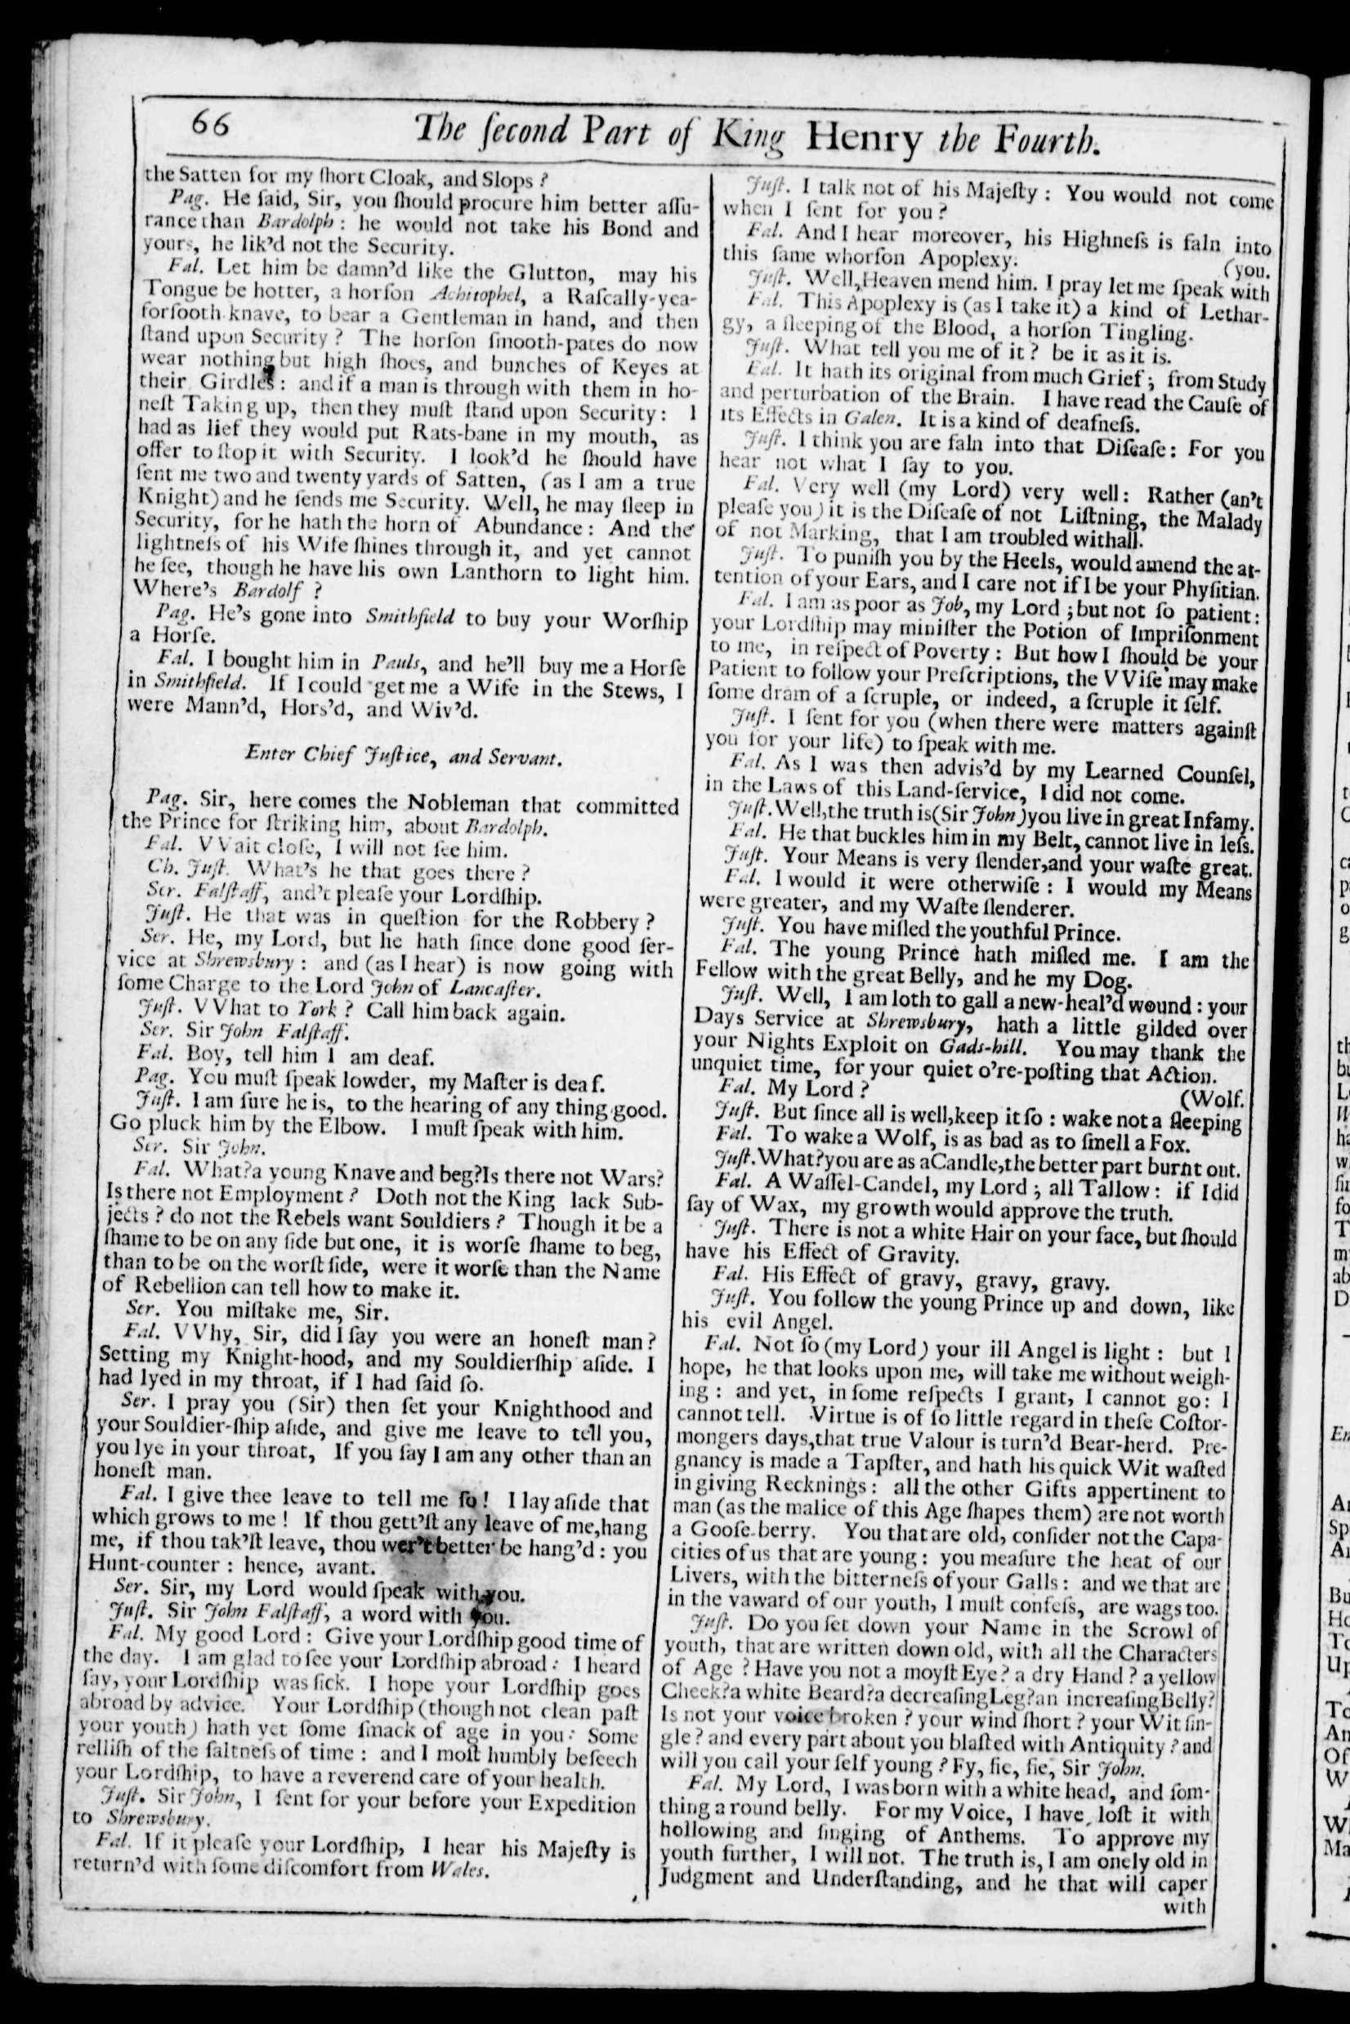 66
The ſecond Part of King Henry the Fourth.
the Satten for my ſhort Cloak, and Slops?
Pag. He ſaid, Sir, you ſhould procure him better aſſu-
rance than Bardolph: he would not take his Bond and
yours, he lik'd not the Security.
Fal. Let him be damn'd like the Glutton, may his
Tongue be hotter, a horſon Achitophel, a Raſcally-yea-
forſooth knave, to bear a Gentleman in hand, and then
ſtand upon Security? The horſon ſmooth-pates do now
wear nothing but high ſhoes, and bunches of Keyes at
their Girdles: and if a man is through with them in ho-
neſt Taking up, then they muſt ſtand upon Security: I
had as lief they would put Rats-bane in my mouth, as
offer to ſtop it with Security. I look'd he ſhould have
ſent me two and twenty yards of Satten, (as I am a true
Knight) and he ſends me Security. Well, he may ſleep in
Security, for he hath the horn of Abundance: And the
lightneſs of his Wife ſhines through it, and yet cannot
he ſee, though he have his own Lanthorn to light him.
Where's Bardolf?
Pag. He's gone into Smithfield to buy your Worſhip
a Horſe.
Fal. I bought him in Pauls, and he'll buy me a Horſe
in Smithfield. If I could get me a Wife in the Stews, I
were Mann'd, Hors'd, and Wiv'd.
Enter Chief Juſtice, and Servant.
Pag. Sir, here comes the Nobleman that committed
the Prince for ſtriking him, about Bardolph.
Fal. VVait cloſe, I will not ſee him.
Ch. Juſt. What's he that goes there?
Ser. Falſtaff, and't pleaſe your Lordſhip.
Juſt. He that was in queſtion for the Robbery?
Ser. He, my Lord, but he hath ſince done good ſer-
vice at Shrewsbury: and (as I hear) is now going with
ſome Charge to the Lord John of Lancaſter.
Juſt. VVhat to York? Call him back again.
Ser. Sir John Falſtaff.
Fal. Boy, tell him I am deaf.
Pag. You muſt ſpeak lowder, my Maſter is deaf.
Juſt. I am ſure he is, to the hearing of any thing good.
Go pluck him by the Elbow. I muſt ſpeak with him.
Ser. Sir John.
Fal. What? a young Knave and beg? Is there not Wars?
Is there not Employment? Doth not the King lack Sub-
jects? do not the Rebels want Souldiers? Though it be a
ſhame to be on any ſide but one, it is worſe ſhame to beg,
than to be on the worſt ſide, were it worſe than the Name
of Rebellion can tell how to make it.
Ser. You miſtake me, Sir.
Fal. VVhy, Sir, did I ſay you were an honeſt man?
Setting my Knight-hood, and my Souldierſhip aſide. I
had lyed in my throat, if I had ſaid ſo.
Ser. I pray you (Sir) then ſet your Knighthood and
your Souldier-ſhip aſide, and give me leave to tell you,
you lye in your throat, If you ſay I am any other than an
honeſt man.
Fal. I give thee leave to tell me ſo! I lay aſide that
which grows to me! If thou gett'ſt any leave of me, hang
me, if thou tak'ſt leave, thou wer't better be hang'd: you
Hunt-counter: hence, avant.
Ser. Sir, my Lord would ſpeak with you.
Juſt. Sir John Falſtaff, a word with you.
Fal. My good Lord: Give your Lordſhip good time of
the day. I am glad to ſee your Lordſhip abroad: I heard
ſay, your Lordſhip was ſick. I hope your Lordſhip goes
abroad by advice. Your Lordſhip (though not clean paſt
your youth) hath yet ſome ſmack of age in you: Some
relliſh of the ſaltneſs of time: and I moſt humbly beſeech
your Lordſhip, to have a reverend care of your health.
Juſt. Sir John, I ſent for your before your Expedition
to Shrewsbury.
Fal. If it pleaſe your Lordſhip, I hear his Majeſty is
return'd with ſome diſcomfort from Wales.
Juſt. I talk not of his Majeſty: You would not come
when I ſent for you?
Fal. And I hear moreover, his Highneſs is faln into
this ſame whorſon Apoplexy.
(you.
Juſt. Well, Heaven mend him. I pray let me ſpeak with
Fal. This Apoplexy is (as I take it) a kind of Lethar-
gy, a ſleeping of the Blood, a horſon Tingling.
Juſt. What tell you me of it? be it as it is.
Fal. It hath its original from much Grief; from Study
and perturbation of the Brain. I have read the Cauſe of
its Effects in Galen. It is a kind of deafneſs.
Juſt. I think you are faln into that Diſeaſe: For you
hear not what I ſay to you.
Fal. Very well (my Lord) very well: Rather (an't
pleaſe you) it is the Diſeaſe of not Liſtning, the Malady
of not Marking, that I am troubled withall.
Juſt. To puniſh you by the Heels, would amend the at-
tention of your Ears, and I care not if I be your Phyſitian.
Fal. I am as poor as Job, my Lord; but not ſo patient:
your Lordſhip may miniſter the Potion of Impriſonment
to me, in reſpect of Poverty: But how I ſhould be your
Patient to follow your Preſcriptions, the VViſe may make
ſome dram of a ſcruple, or indeed, a ſcruple it ſelf.
Juſt. I ſent for you (when there were matters againſt
you for your life) to ſpeak with me.
Fal. As I was then advis'd by my Learned Counſel,
in the Laws of this Land-ſervice, I did not come.
Juſt. Well, the truth is (Sir John) you live in great Infamy.
Fal. He that buckles him in my Belt, cannot live in leſs.
Juſt. Your Means is very ſlender, and your waſte great.
Fal. I would it were otherwiſe: I would my Means
were greater, and my Waſte ſlenderer.
Juſt. You have miſled the youthful Prince.
Fal. The young Prince hath miſled me. I am the
Fellow with the great Belly, and he my Dog.
Juſt. Well, I am loth to gall a new-heal'd wound: your
Days Service at Shrewsbury, hath a little gilded over
your Nights Exploit on Gads-hill. You may thank the
unquiet time, for your quiet o're-poſting that Action.
Fal. My Lord?
(Wolf.
Juſt. But ſince all is well, keep it ſo: wake not a ſleeping
Fal. To wake a Wolf, is as bad as to ſmell a Fox.
Juſt. What? you are as a Candle, the better part burnt out.
Fal. A Waſſel-Candel, my Lord; all Tallow: if I did
ſay of Wax, my growth would approve the truth.
Juſt. There is not a white Hair on your face, but ſhould
have his Effect of Gravity.
Fal. His Effect of gravy, gravy, gravy.
Juſt. You follow the young Prince up and down, like
his evil Angel.
Fal. Not ſo (my Lord) your ill Angel is light: but I
hope, he that looks upon me, will take me without weigh-
ing: and yet, in ſome reſpects I grant, I cannot go: I
cannot tell. Virtue is of ſo little regard in theſe Coſtor-
mongers days, that true Valour is turn'd Bear-herd. Pre-
gnancy is made a Tapſter, and hath his quick Wit waſted
in giving Recknings: all the other Gifts appertinent to
man (as the malice of this Age ſhapes them) are not worth
a Gooſe-berry. You that are old, conſider not the Capa-
cities of us that are young: you meaſure the heat of our
Livers, with the bitterneſs of your Galls: and we that are
in the vaward of our youth, I muſt confeſs, are wags too.
Juſt. Do you ſet down your Name in the Scrowl of
youth, that are written down old, with all the Characters
of Age? Have you not a moyſt Eye? a dry Hand? a yellow
Cheek? a white Beard? a decreaſing Leg? an increaſing Belly?
Is not your voice broken? your wind ſhort? your Wit ſin-
gle? and every part about you blaſted with Antiquity? and
will you call your ſelf young? Fy, fie, fie, Sir John.
Fal. My Lord, I was born with a white head, and ſom-
thing a round belly. For my Voice, I have loſt it with
hollowing and ſinging of Anthems. To approve my
youth further, I will not. The truth is, I am onely old in
Judgment and Underſtanding, and he that will caper
with